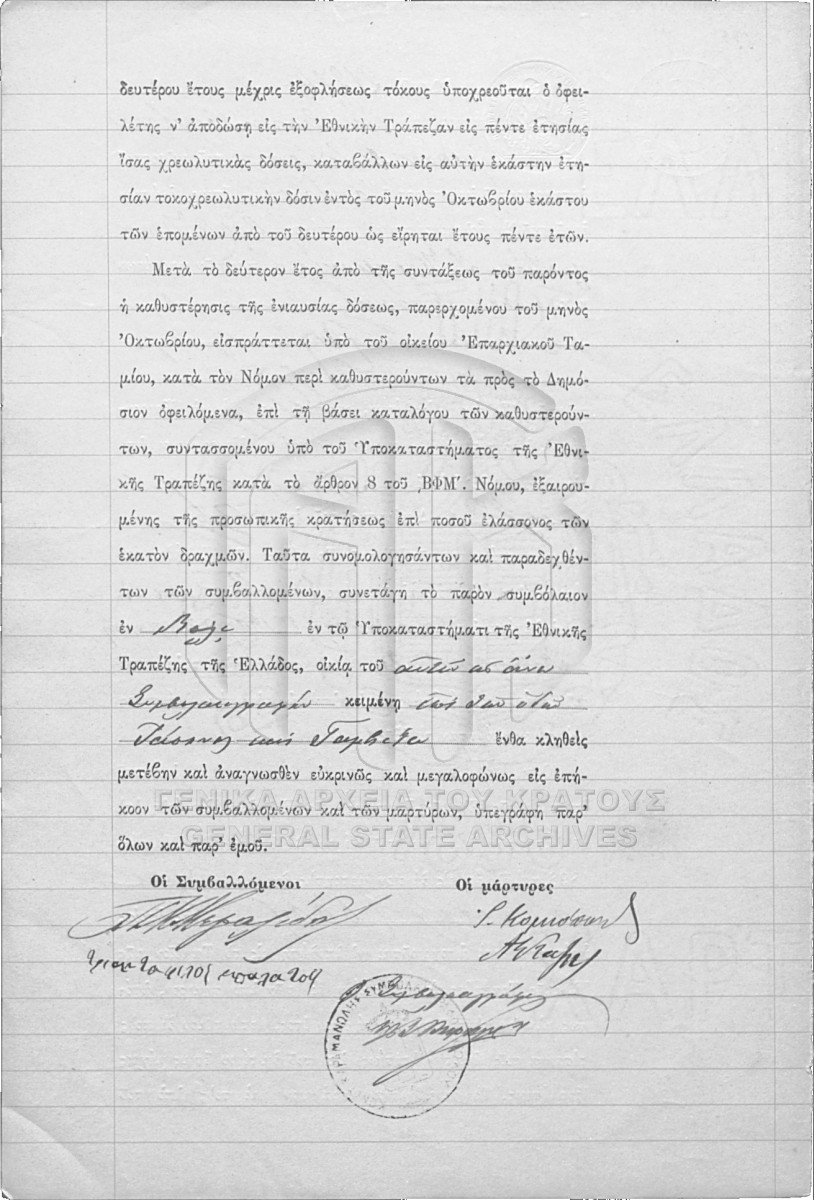 δευτέρου ἔτους μέχρις ἐξοφλήσεως τόκους ὑποχρεοῦται ὁ ὀφει-
λέτης ν' ἀποδώσῃ εἰς τὴν Ἐθνικὴν Τράπεζαν εἰς πέντε ἐτησίας
ἴσας χρεωλυτικὰς δόσεις, καταβάλλων εἰς αὐτὴν ἑκάστην ἐτη-
σίαν τοκοχρεωλυτικὴν δόσιν ἐντὸς τοῦ μηνὸς Ὀκτωβρίου ἑκάστου
τῶν ἑπομένων ἀπὸ τοῦ δευτέρου ὡς εἴρηται ἔτους πέντε ἐτῶν.
Μετὰ τὸ δεύτερον ἔτος ἀπὸ τῆς συντάξεως τοῦ παρόντος
ἡ καθυστέρησις τῆς ἐνιαυσίας δόσεως, παρερχομένου τοῦ μηνὸς
Ὀκτωβρίου, εἰσπράττεται ὑπὸ τοῦ οἰκείου Ἐπαρχιακοῦ Τα-
μίου, κατὰ τὸν Νόμον περὶ καθυστερούντων τὰ πρὸς τὸ Δημό-
σιον ὀφειλόμενα, ἐπὶ τῇ βάσει καταλόγου τῶν καθυστερούν-
των, συντασσομένου ὑπὸ τοῦ Ὑποκαταστήματος τῆς Ἐθνι-
κῆς Τραπέζης κατὰ τὸ ἄρθρον 8 τοῦ ͵ΒΦΜ'. Νόμου, ἐξαιρου-
μένης τῆς προσωπικῆς κρατήσεως ἐπὶ ποσοῦ ἐλάσσονος τῶν
ἑκατὸν δραχμῶν. Ταῦτα συνομολογησάντων καὶ παραδεχθέν-
των τῶν συμβαλλομένων, συνετάγη τὸ παρὸν συμβόλαιον
ἐν Βόλῳ ἐν τῷ Ὑποκαταστήματι τῆς Ἐθνικῆς
Τραπέζης τῆς Ἑλλάδος, οἰκίᾳ τοῦ
κειμένῃ
καὶ ἔνθα κληθεὶς
μετέβην καὶ ἀναγνωσθὲν εὐκρινῶς καὶ μεγαλοφώνως εἰς ἐπή-
κοον τῶν συμβαλλομένων καὶ τῶν μαρτύρων, ὑπεγράφη παρ'
ὅλων καὶ παρ' ἐμοῦ.
ΓΕΝΙΚΑ ΑΡΧΕΙΑ ΤΟΥ ΚΡΑΤΟΥΣ
GENERAL STATE ARCHIVES
Οἱ Συμβαλλόμενοι Οἱ μάρτυρες
Ὁ Συμβολαιογράφος